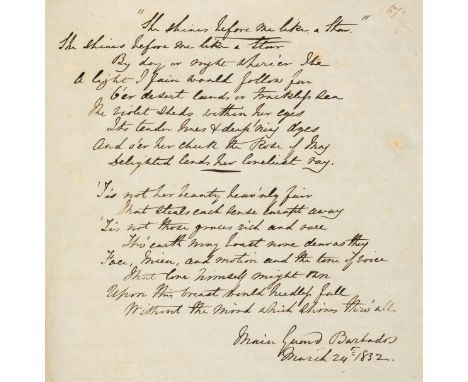 "She shines before me like a star."
She shines before me like a star
By day or night where'er I be
A light I fain would follow far
O'er desert lands or trackless sea
The violet sheds within her eyes
Its tender hues & deep'ning dyes
And o'er her cheek the Rose of May
Delighted lends her loveliest ray.
'Tis not her beauty heav'nly fair
That steals each sense enrapt away
'Tis not those graces rich and rare
Tho' earth may boast none dear as they
Face, Mien, and motion and the tone of voice
That love himself might own
Upon this breast would needless fall
Without the mind which shines thro' all
Main Guard Barbados
March 24th 1832.